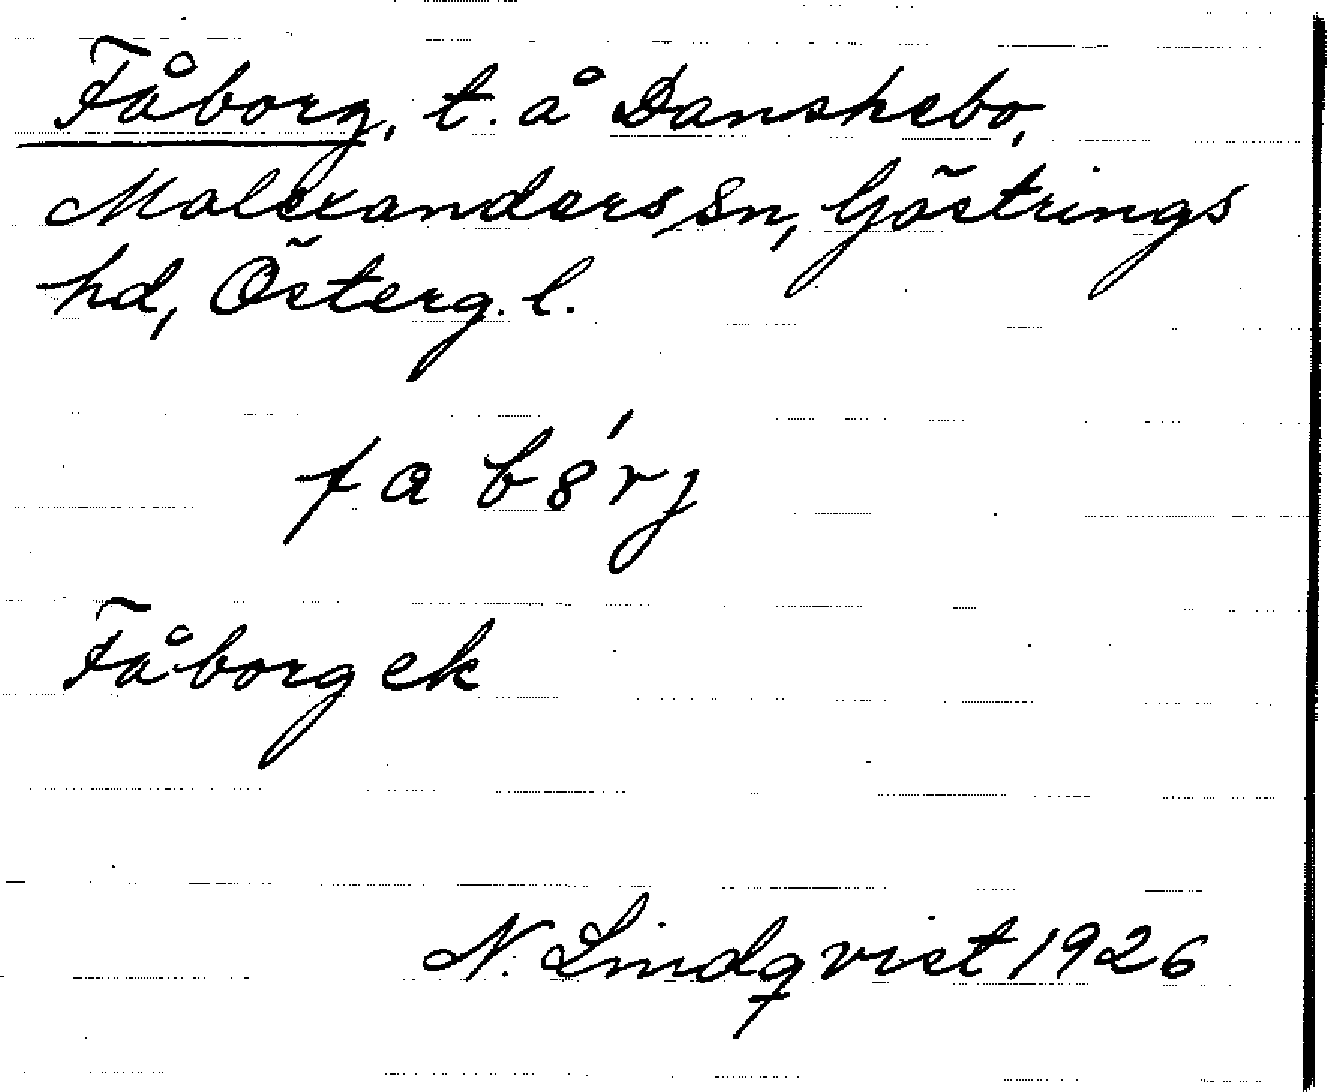 Fåborg, t. å Danskebo,
Malexanders sn, Göstrings
hd, Österg. l.
fabórj
Fåborg ek
N. Lindqvist 1926